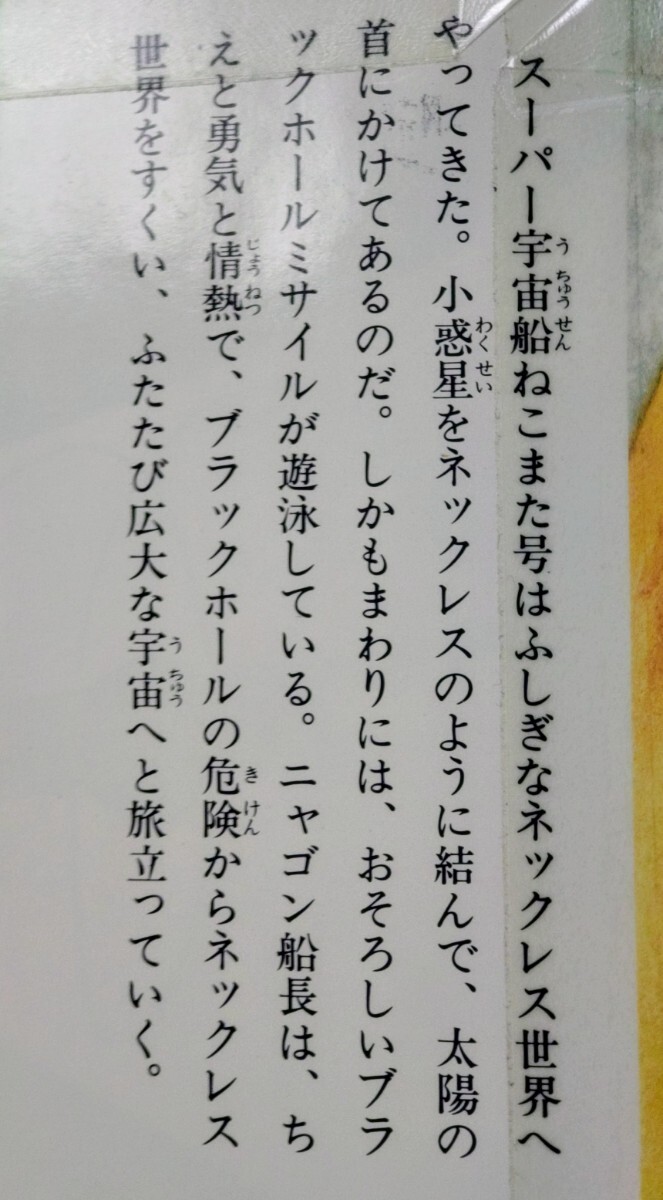 スーパー宇宙船ねこまた号はふしぎなネックレス世界へ
やってきた。小惑星をネックレスのように結んで、太陽の
首にかけてあるのだ。しかもまわりには、おそろしいブラ
ックホールミサイルが遊泳している。ニャゴン船長は、ち
えと勇気と情熱で、ブラックホールの危険からネックレス
世界をすくい、ふたたび広大な宇宙へと旅立っていく。